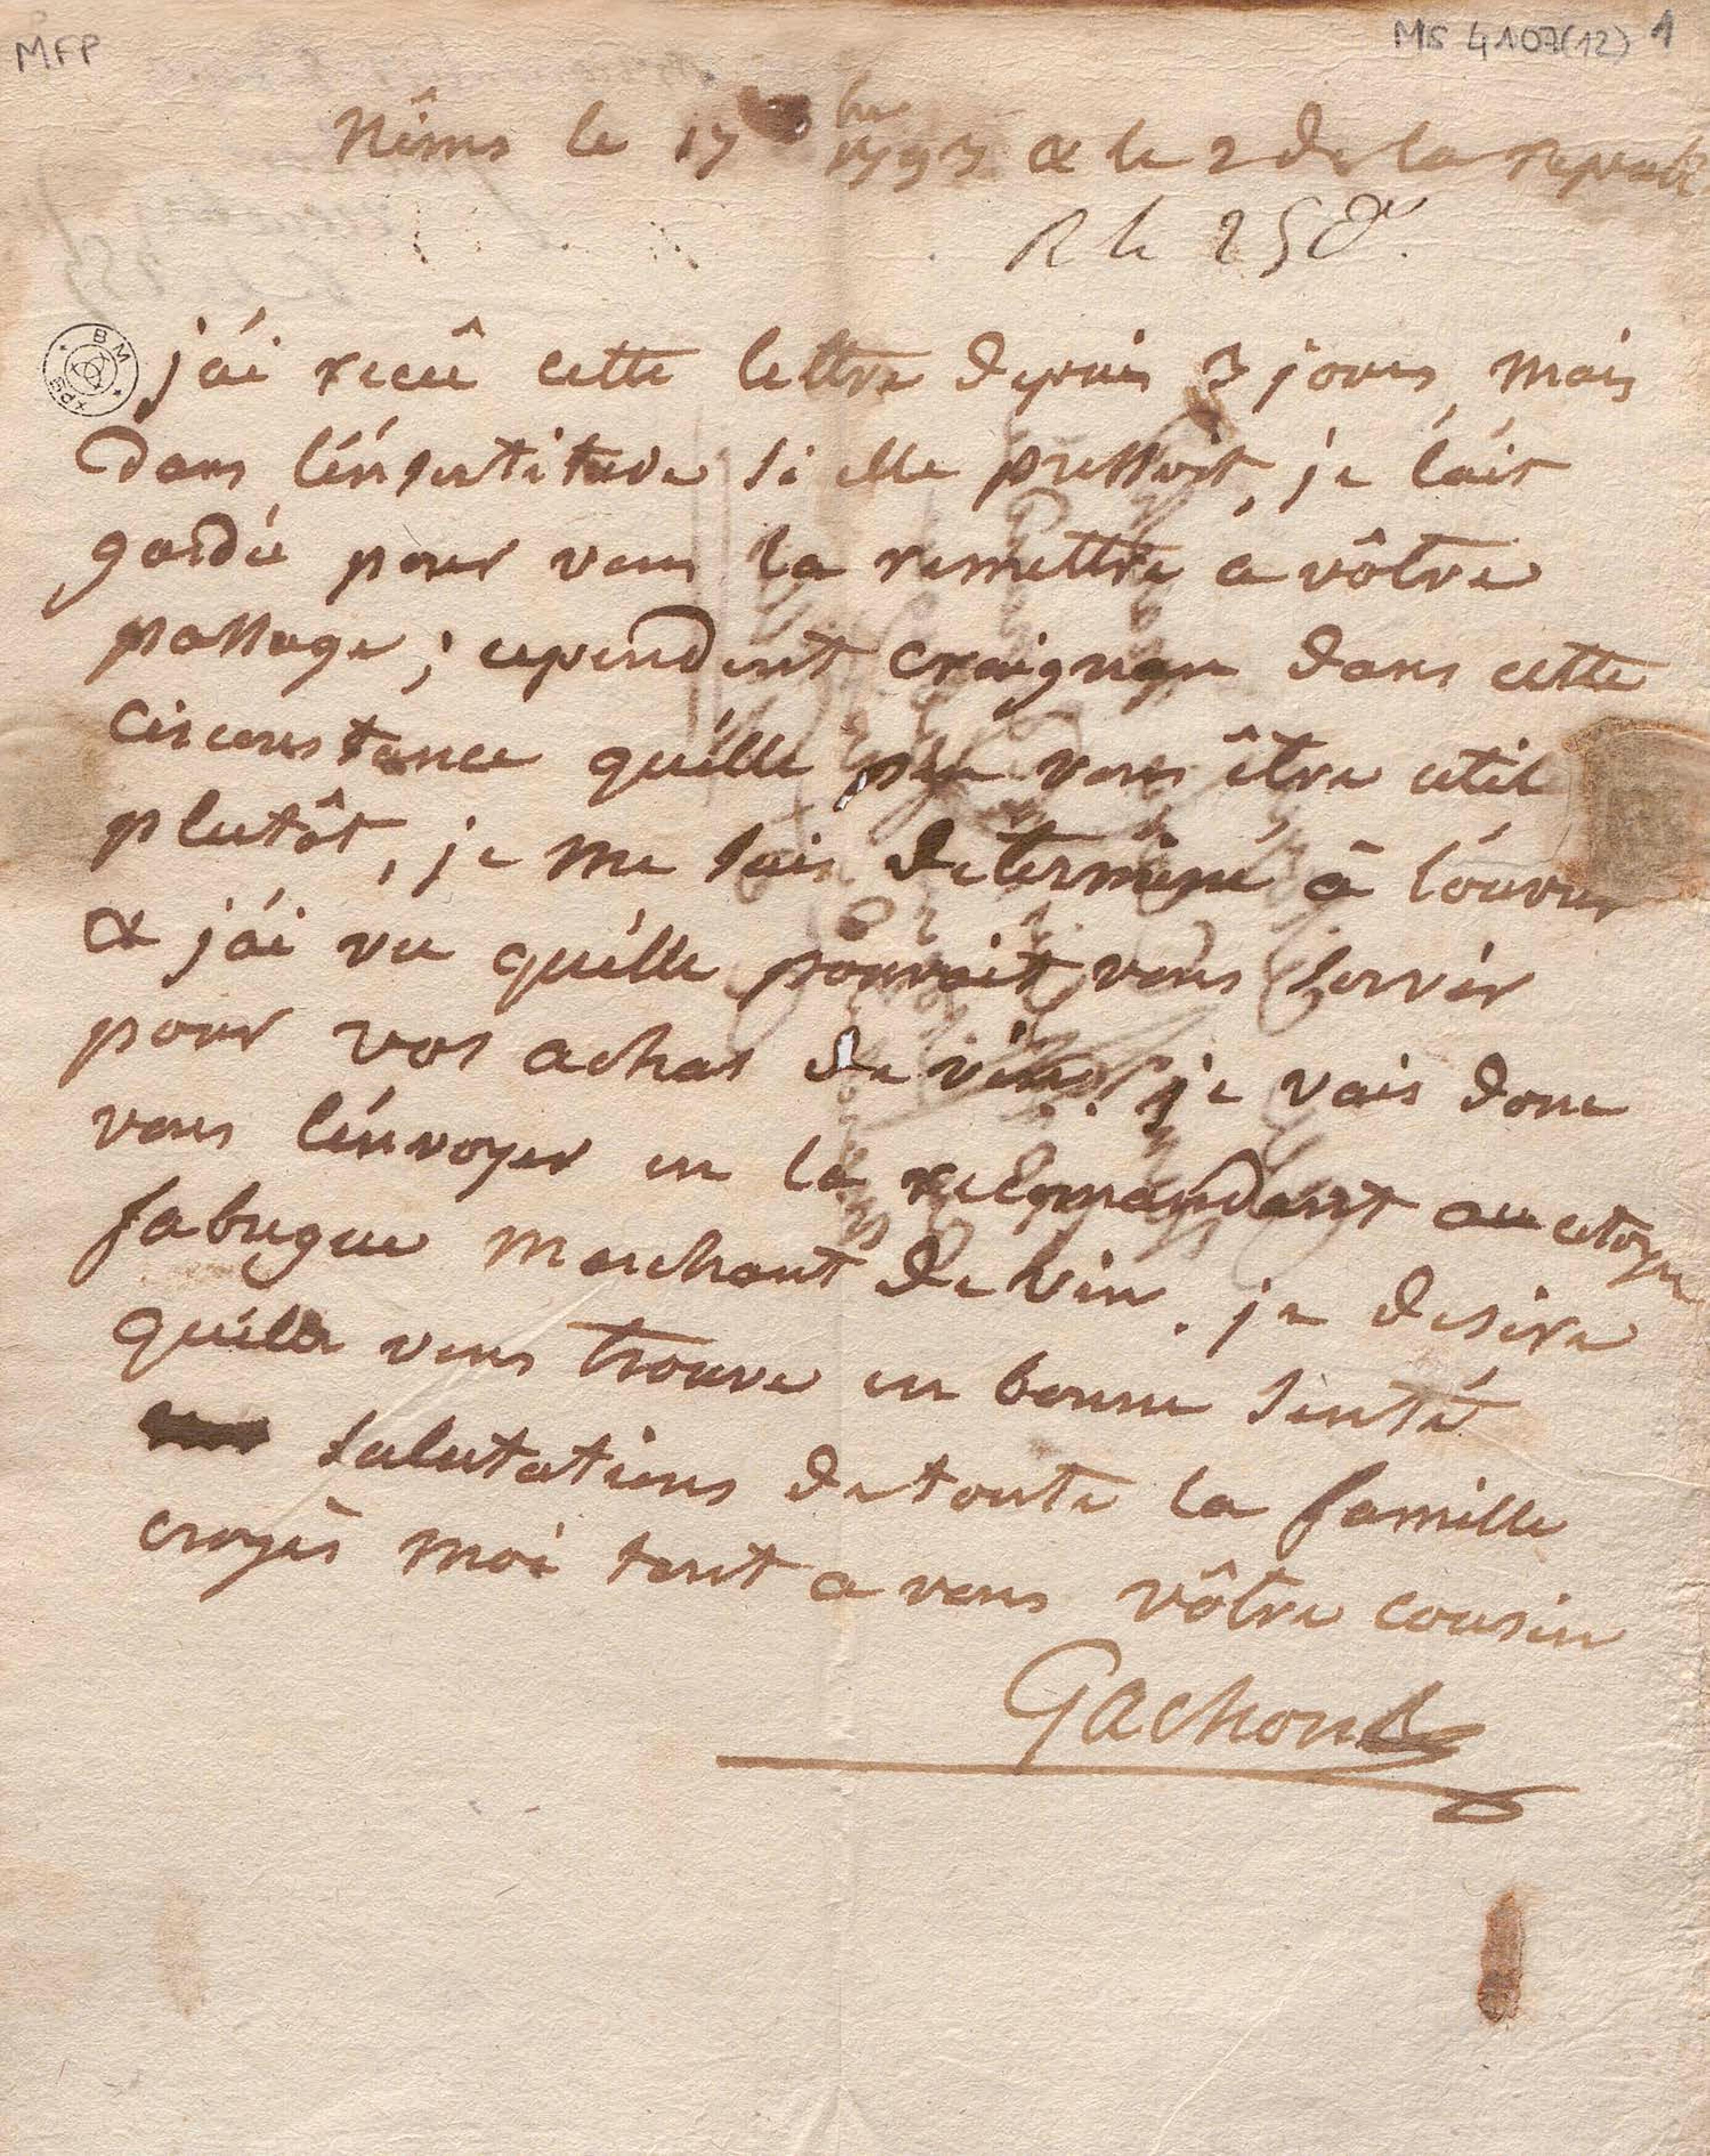 MFP
MS 4107(12) 1
Nîmes le 17 bre 1793 & le 2 de la republ
R le 25 d.
BM
j'ái recû cette lettre depuis 3 jours, mais
dans l'énsertitude si elle pressoit, je l'áis
gardé pour vous la remettre a vôtre
passage ; cependent craignan dans cette
circonstance qu'élle peu vous être util
plutôt, je me suis determiné à l'óuvrir
& j'ái vu qu'élle pouvoit vous servir
pour vos achas de vin. je vais donc
vous l'énvoyer en la recomandant au citoyen
fabregue marchant de vin. je desire
qu'élle vous trouve en bonne senté
salutations de toute la famille
croyés moi tout a vous vôtre cousin
Gachon